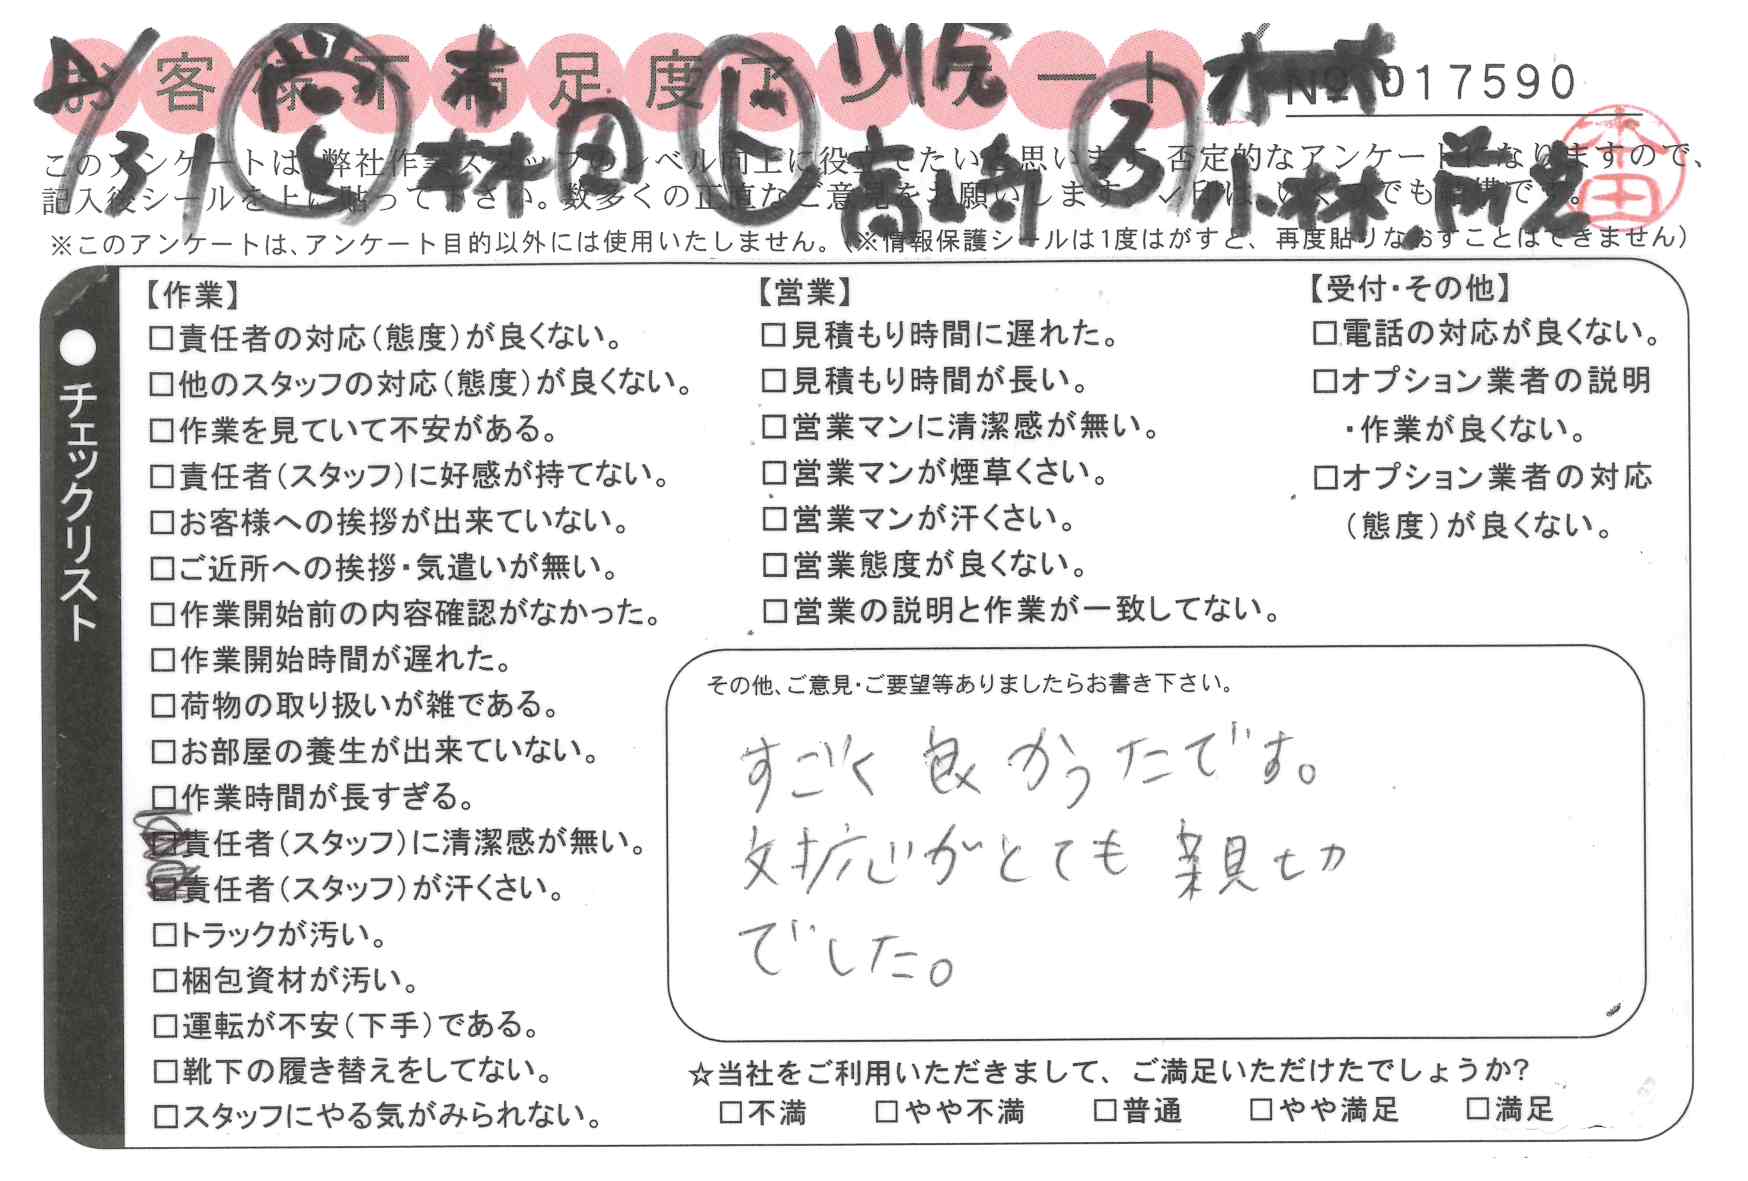 お客様不満足度アンケート
№ 017590
このアンケートは、弊社作業スタッフのレベル向上に役立てたいと思います。否定的なアンケートになりますので、
記入後シールを上に貼って下さい。数多くの正直なご意見をお願いします。✓印は、いくつでも結構です。
※このアンケートは、アンケート目的以外には使用いたしません。(※情報保護シールは1度はがすと、再度貼りなおすことはできません)
31
林田
高崎
小林
チェックリスト
【作業】
□責任者の対応(態度)が良くない。
□他のスタッフの対応(態度)が良くない。
□作業を見ていて不安がある。
□責任者(スタッフ)に好感が持てない。
□お客様への挨拶が出来ていない。
□ご近所への挨拶・気遣いが無い。
□作業開始前の内容確認がなかった。
□作業開始時間が遅れた。
□荷物の取り扱いが雑である。
□お部屋の養生が出来ていない。
□作業時間が長すぎる。
□責任者(スタッフ)に清潔感が無い。
□責任者(スタッフ)が汗くさい。
□トラックが汚い。
□梱包資材が汚い。
□運転が不安(下手)である。
□靴下の履き替えをしてない。
□スタッフにやる気がみられない。
【営業】
□見積もり時間に遅れた。
□見積もり時間が長い。
□営業マンに清潔感が無い。
□営業マンが煙草くさい。
□営業マンが汗くさい。
□営業態度が良くない。
□営業の説明と作業が一致してない。
【受付・その他】
□電話の対応が良くない。
□オプション業者の説明
・作業が良くない。
□オプション業者の対応
(態度)が良くない。
その他、ご意見・ご要望等ありましたらお書き下さい。
すごく良かったです。
対応がとても親切
でした。
☆当社をご利用いただきまして、ご満足いただけたでしょうか?
□不満 □やや不満 □普通 □やや満足 □満足